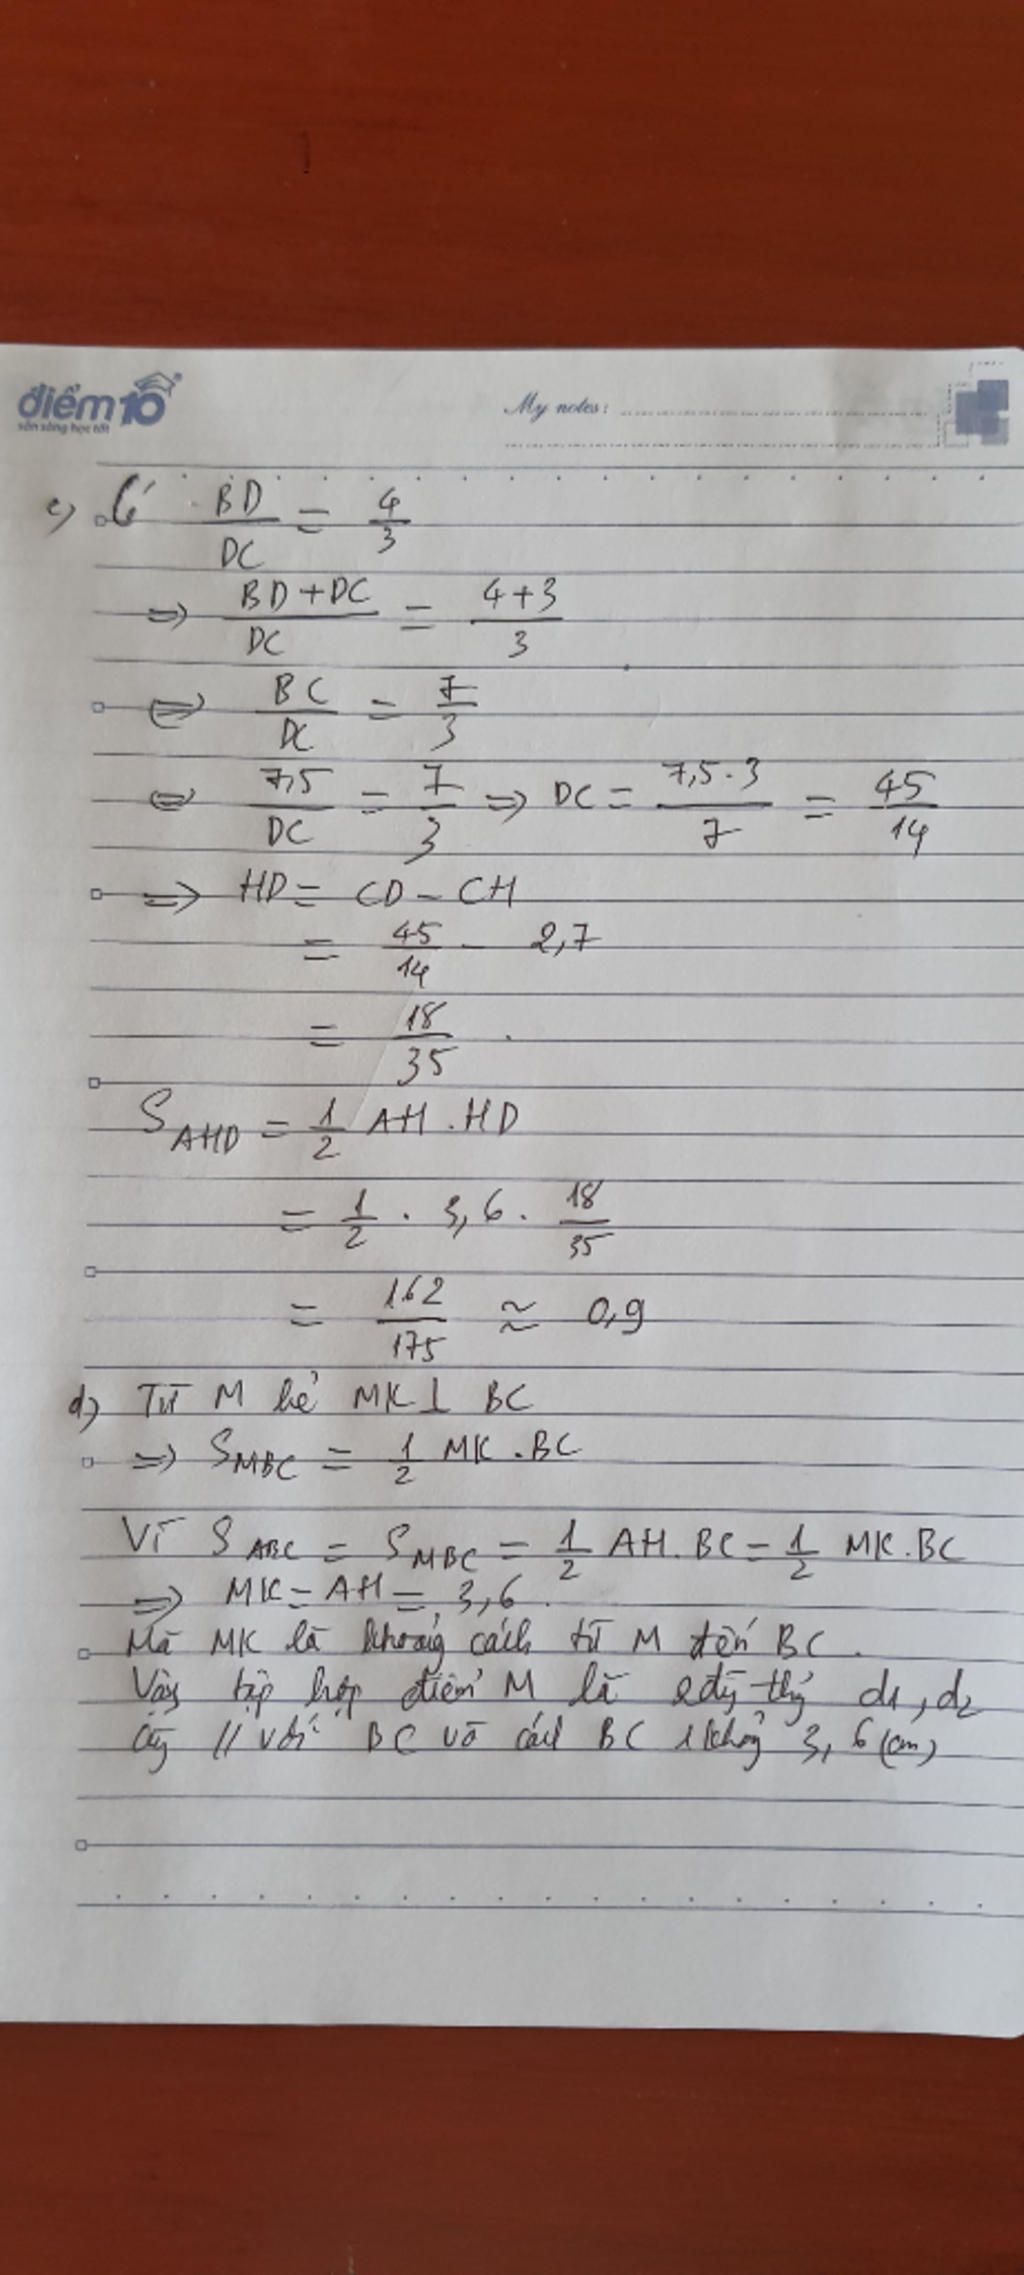 điểm10
sẵn sàng học tốt
My notes:
c) Có BD/DC = 4/3
=> (BD+DC)/DC = (4+3)/3
<=> BC/DC = 7/3
<=> 7,5/DC = 7/3 => DC = 7,5.3/7 = 45/14
=> HD = CD - CH
= 45/14 - 2,7
= 18/35.
S AHD = 1/2 AH.HD
= 1/2 . 3,6. 18/35
= 162/175 ≈ 0,9
d) Từ M kẻ MK⊥ BC
=> S MBC = 1/2 MK.BC
Vì S ABC = S MBC = 1/2 AH.BC = 1/2 MK.BC
=> MK = AH = 3,6.
Mà MK là khoảng cách từ M đến BC.
Vậy tập hợp điểm M là 2 thg d1, d2
// với BC và cách BC 1 khoảng 3,6 (cm)